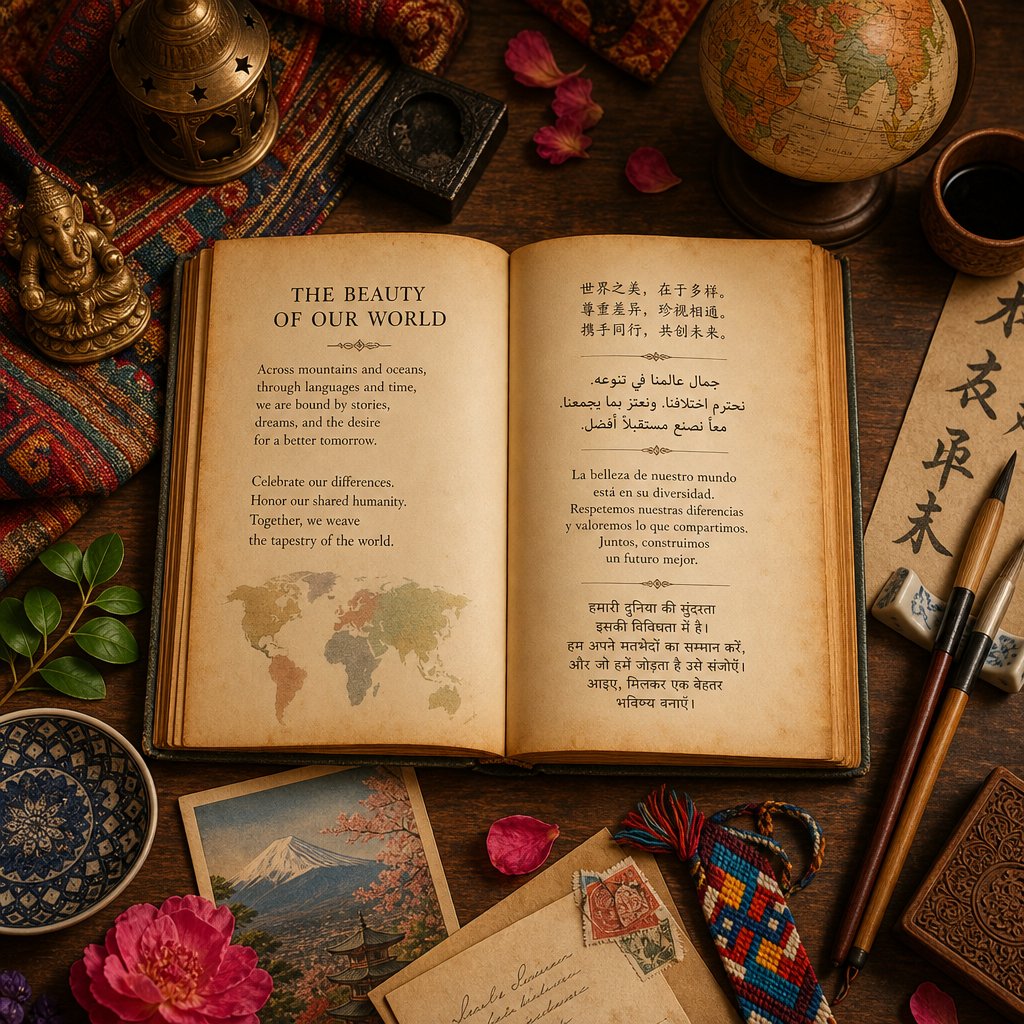 THE BEAUTY
OF OUR WORLD
Across mountains and oceans,
through languages and time,
we are bound by stories,
dreams, and the desire
for a better tomorrow.
Celebrate our differences.
Honor our shared humanity.
Together, we weave
the tapestry of the world.
世界之美，在于多样。
尊重差异，珍视相通。
携手同行，共创未来。
جمال عالمنا في تنوعه.
نحترم اختلافنا. ونعتز بما يجمعنا.
معاً نصنع مستقبلاً أفضل.
La belleza de nuestro mundo
está en su diversidad.
Respetemos nuestras diferencias
y valoremos lo que compartimos.
Juntos, construimos
un futuro mejor.
हमारी दुनिया की सुंदरता
इसकी विविधता में है।
हम अपने मतभेदों का सम्मान करें,
और जो हमें जोड़ता है उसे संजोएँ।
आइए, मिलकर एक बेहतर
भविष्य बनाएँ।